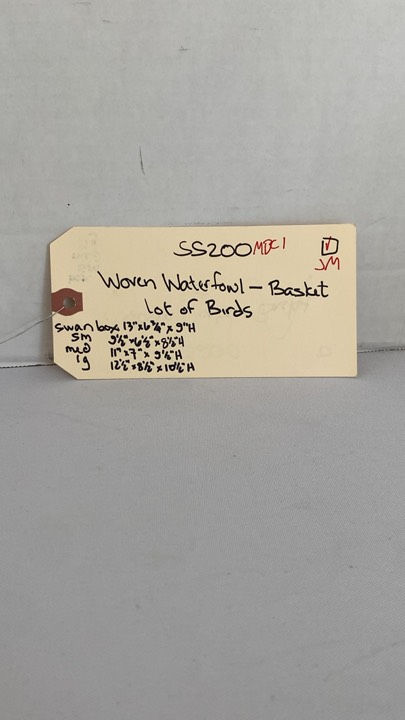 SS200 MDC1
JM
Woven Waterfowl - Basket
lot of Birds
swan box 13"x6½"x9"H
sm 9½"x6½"x8½"H
med 11"x7"x9½"H
lg 12½"x8½"x10½"H